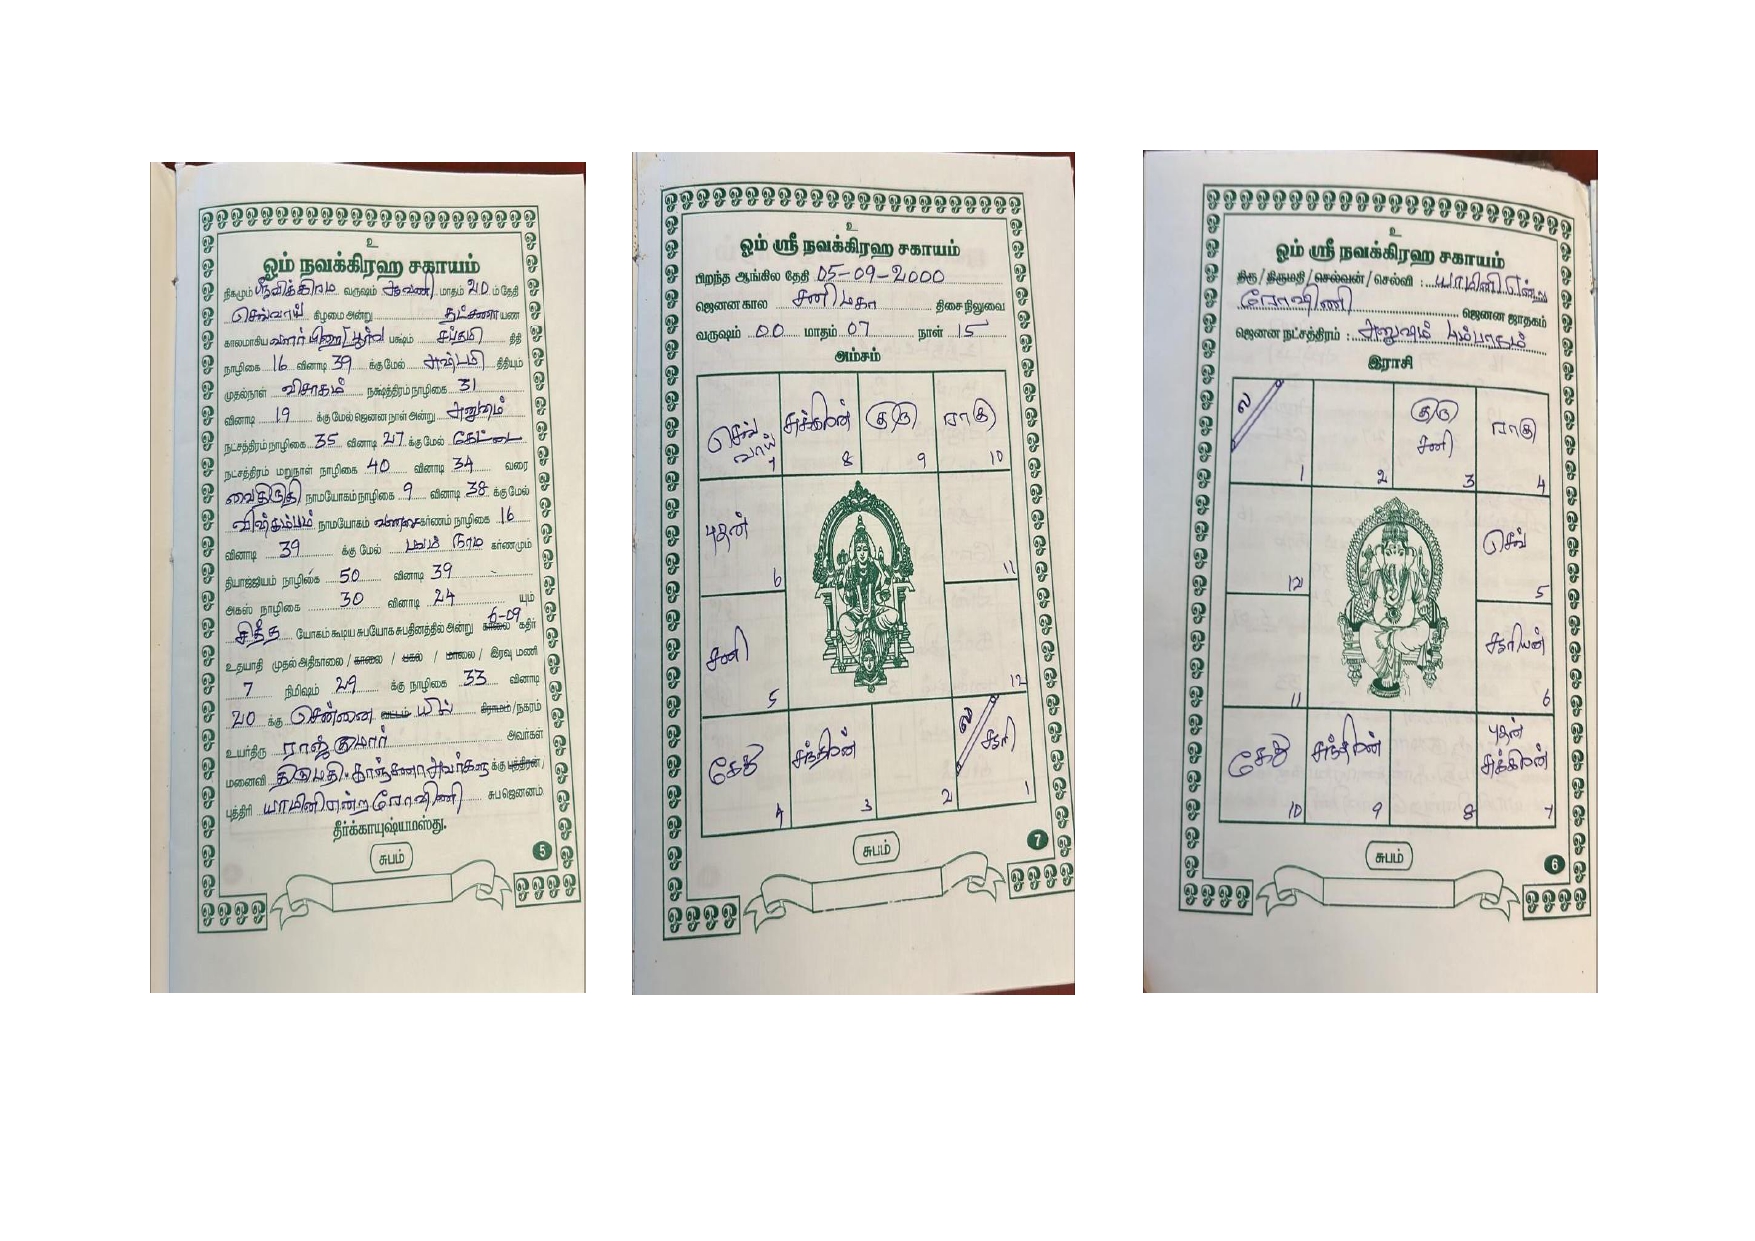 உ
ஓம் நவக்கிரஹ சகாயம்
நிகமும் ஸ்ரீவிக்கிரம வருஷம் ஆவணி மாதம் 20 ம் தேதி
செவ்வாய் கிழமை அன்று தட்சணா யண
காலமாகிய வளர்பிறை/பூர்வ பக்ஷம் சப்தமி திதி
நாழிகை 16 வினாடி 39 க்கு மேல் அஷ்டமி திதியும்
முதல்நாள் விசாகம் நக்ஷத்திரம் நாழிகை 31
வினாடி 19 க்கு மேல் ஜெனன நாள் அன்று அனுஷம்
நட்சத்திரம் நாழிகை 35 வினாடி 27 க்கு மேல் கேட்டை
நட்சத்திரம் மறுநாள் நாழிகை 40 வினாடி 34 வரை
வைதிருதி நாமயோகம் நாழிகை 9 வினாடி 38 க்கு மேல்
விஷ்கம்பம் நாமயோகம் வணசை கர்ணம் நாழிகை 16
வினாடி 39 க்கு மேல் நாம கர்ணமும்
தியாஜ்ஜியம் நாழிகை 50 வினாடி 39
அகஸ் நாழிகை 30 வினாடி 24 யும்
6-09
சித்த யோகம் கூடிய சுபயோக சுபதினத்தில் அன்று காலை கதிர்
உதயாதி முதல் அதிகாலை / காலை / பகல் / மாலை / இரவு மணி
7 நிமிஷம் 29 க்கு நாழிகை 33 வினாடி
20 க்கு சென்னை வட்டம் யில் கிராமம்/நகரம்
உயர்திரு ராஜ்குமார் அவர்கள்
மனைவி திருமதி. காஞ்சனா அவர்களு க்கு புத்திரன்/
புத்திரி யாமினி என்ற ரோஷிணி சுப ஜெனனம்
தீர்க்காயுஷ்யமஸ்து.
சுபம்
5
உ
ஓம் ஸ்ரீ நவக்கிரஹ சகாயம்
பிறந்த ஆங்கில தேதி 05-09-2000
ஜெனன கால சனி மகா திசை நிலுவை
வருஷம் 00 மாதம் 07 நாள் 15
அம்சம்
செவ்வாய் 7 சுக்கிரன் 8 குரு 9 ராகு 10
புதன் 6 11
சனி 5 12
கேது 4 சந்திரன் 3 2 ல சூரி 1
சுபம்
7
உ
ஓம் ஸ்ரீ நவக்கிரஹ சகாயம்
திரு / திருமதி / செல்வன் / செல்வி : யாமினி என்ற
ரோஷிணி ஜெனன ஜாதகம்
ஜெனன நட்சத்திரம் : அனுஷம் 4ம் பாதம்
இராசி
ல 1 2 குரு சனி 3 ராகு 4
12 செவ் 5
11 சூரியன் 6
கேது 10 சந்திரன் 9 8 புதன் சுக்கிரன் 7
சுபம்
6